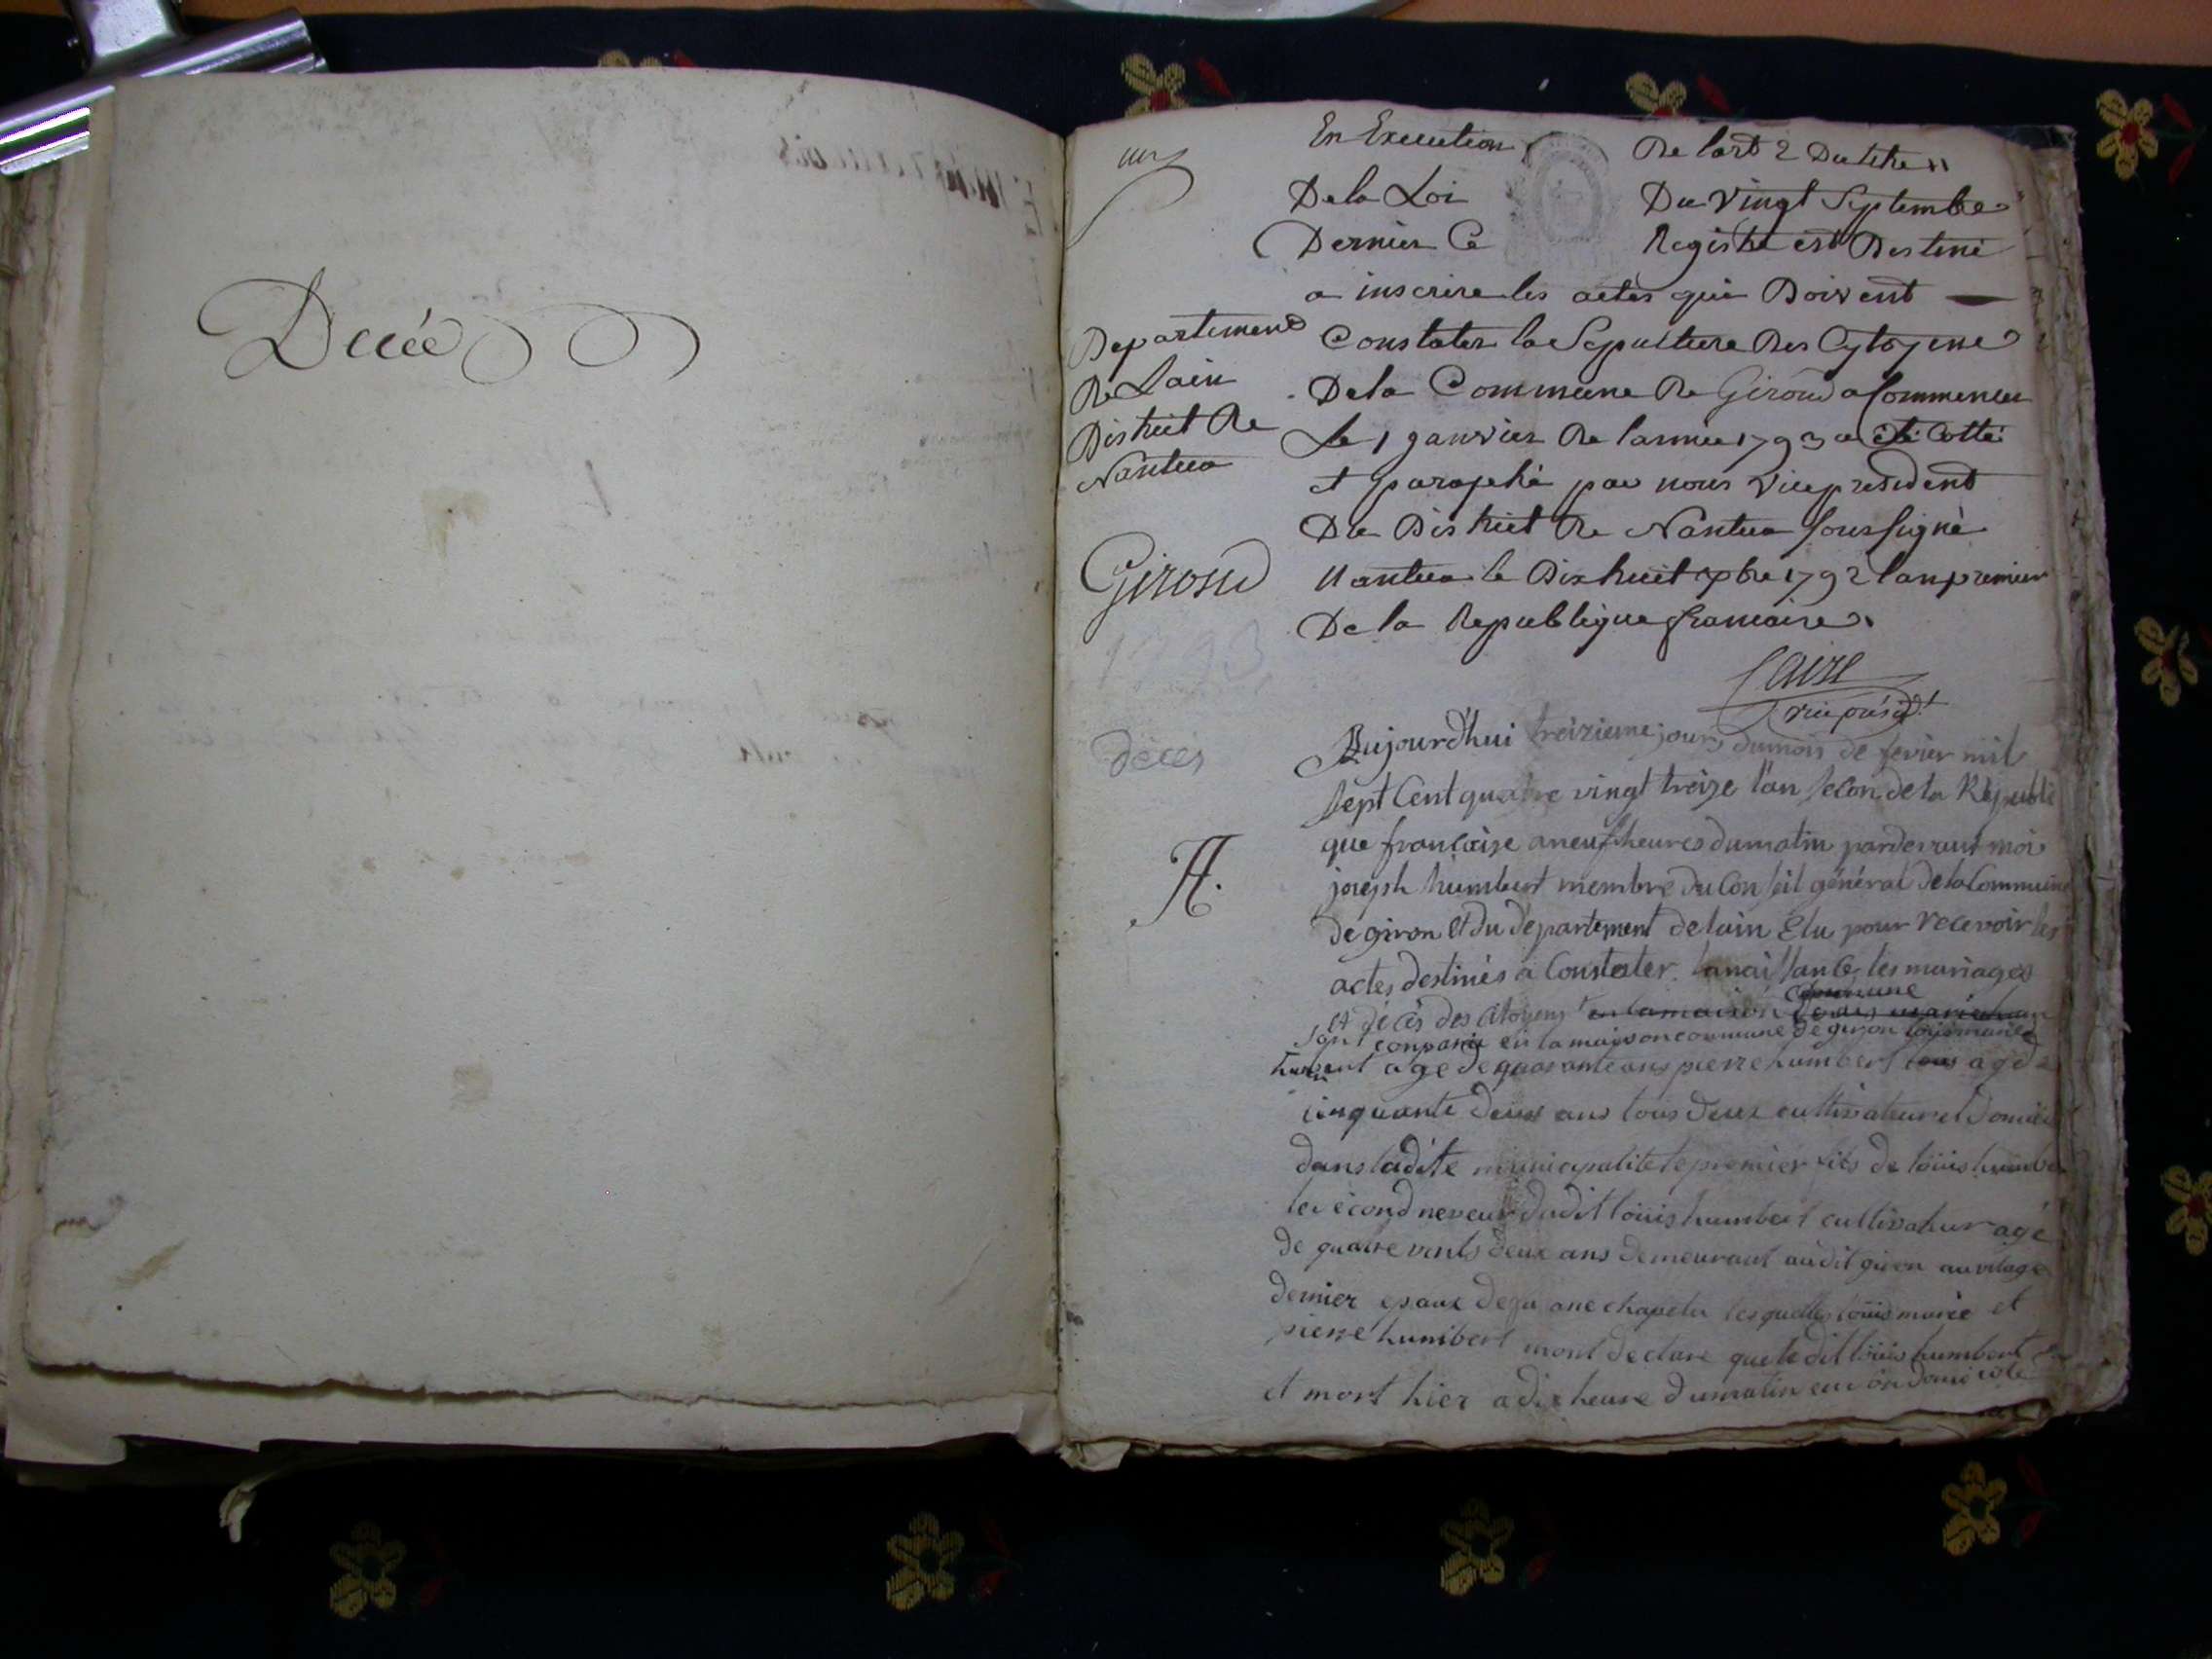 Decée
En Execution De lart 2 Du titre 11
De la Loi Du Vingt Septembre
Dernier Ce Registre est Destiné
a inscrire les actes qui Doivent
Constater la Sepulture Des Cytoyens
De la Commune De Girond a Commencer
Le 1 janvier De lannee 1793 a été Cotté
et paraphé par nous Vice president
Du District De Nantua Soussigné
Nantua le Dix huit xbre 1792 lan premier
De la Republique francaise.
Departement
De Lain
District De
Nantua
Girond
1793
vice présidt
décés
A.
Aujourd'hui treizieme jour, du mois de fevier mil
sept Cent quatre vingt treize l'an secon de la Républi
que francaise a neuf heures du matin pardevant moi
joseph humbert membre du Conseil général de la Commune
de giron et du département de lain Elu pour recevoir les
actes destinés a Constater la naissance les mariages
et décès des citoyens en la maison commune
sont comparu en la maison commune de giron louis marie
humbert age de quarante ans pierre humbert tous agé
cinquante deux ans tous deux cultivateur et domicil
dans ladite municipalite le premier fils de loüis humber
le second neveur dudit loüis humbert cultivateur agé
de quatre vents deux ans demeurant audit giron au vilage
dernier epoux de chapelu lesquelles loüis marie et
pierre humbert mont declare que le dit loüis humbert
et mort hier a dix heure du matin en son domicile